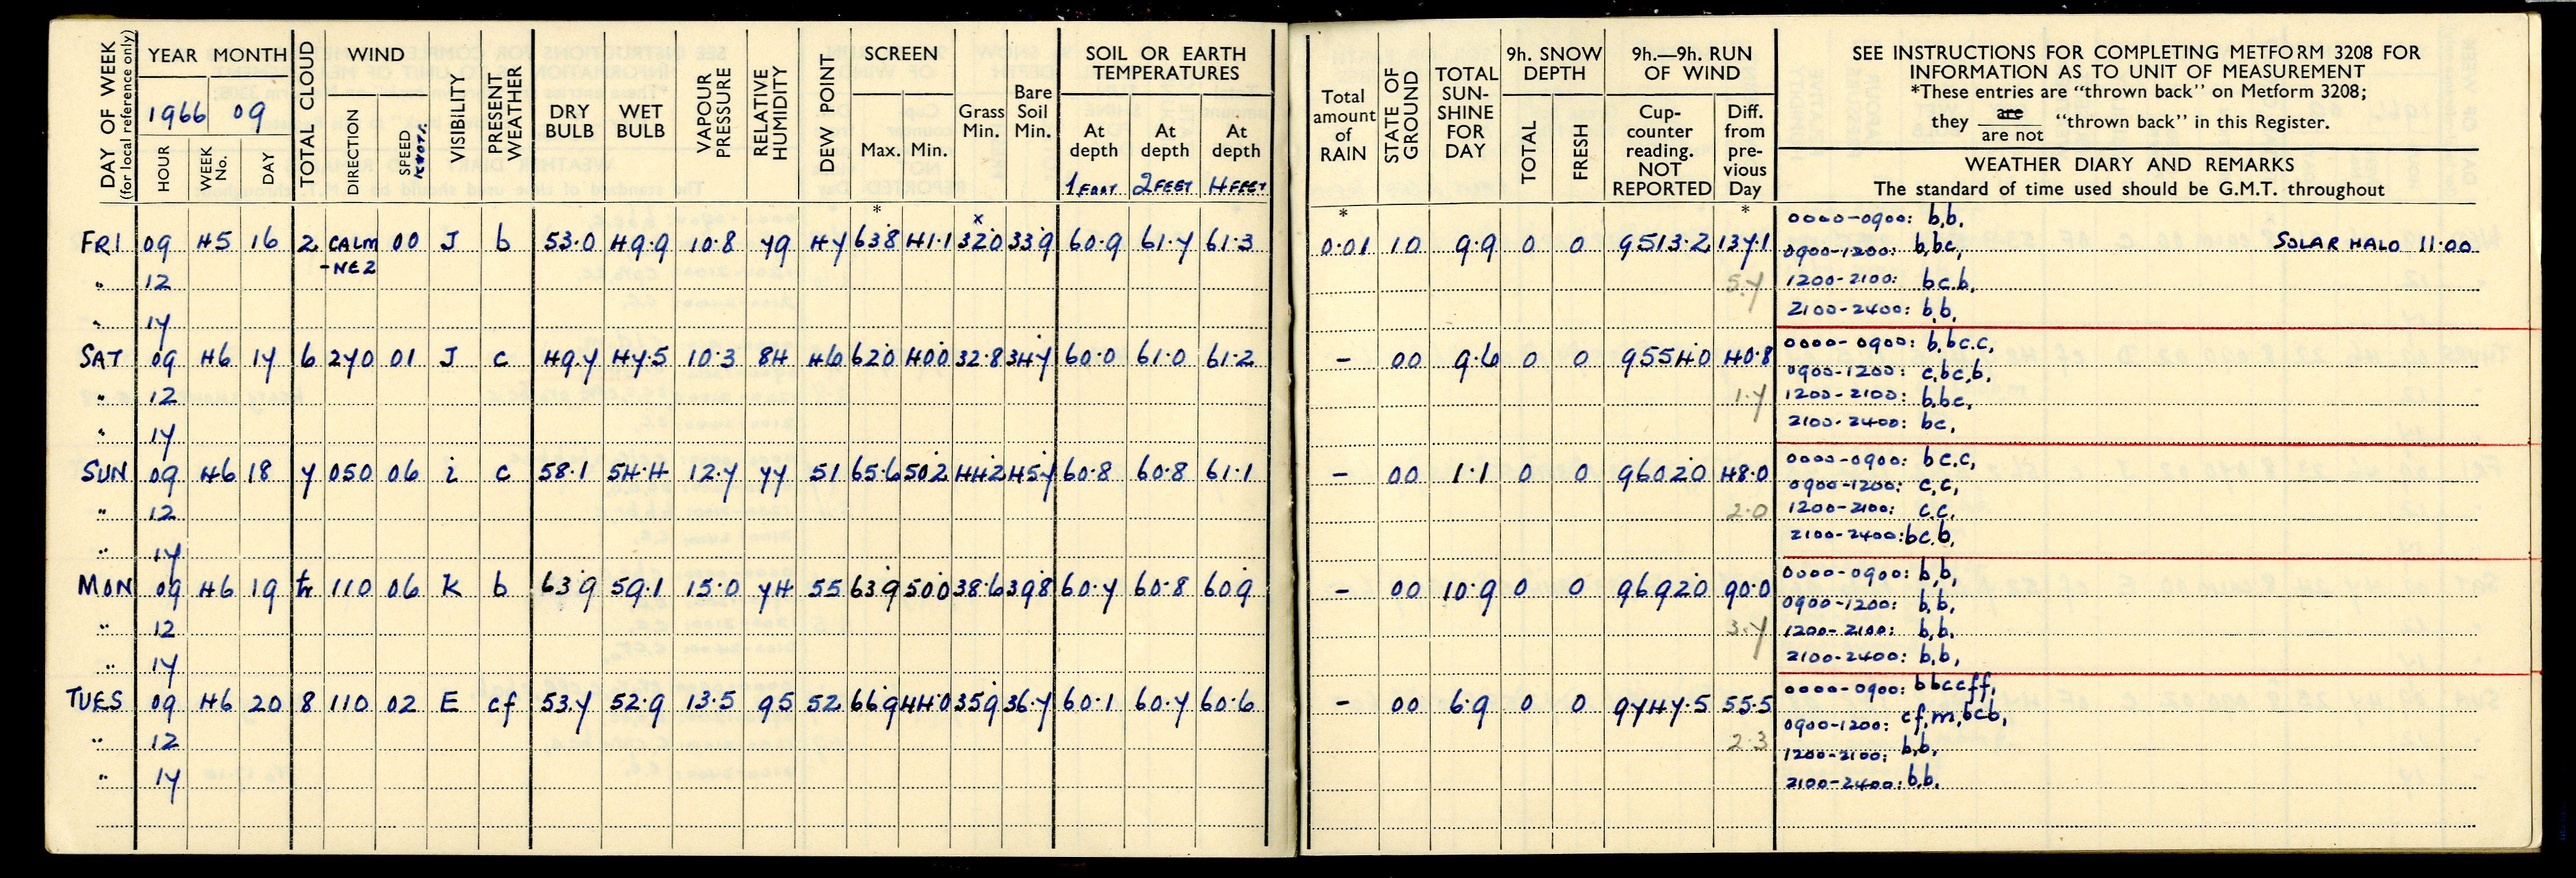 DAY OF WEEK (for local reference only) YEAR MONTH TOTAL CLOUD WIND VISIBILITY PRESENT WEATHER DRY BULB WET BULB VAPOUR PRESSURE RELATIVE HUMIDITY DEW POINT SCREEN SOIL OR EARTH TEMPERATURES
1966 09
HOUR WEEK No. DAY DIRECTION SPEED KNOTS. Max. Min. Grass Min. Bare Soil Min. At depth At depth At depth
1 FOOT 2 FEET 4 FEET
* x
FRI 09 45 16 2 CALM 00 J b 53.0 49.9 10.8 79 47 63.8 41.1 32.0 33.9 60.9 61.7 61.3
-NE2
" 12
" 17
SAT 09 46 17 6 270 01 J c 49.7 47.5 10.3 84 46 62.0 40.0 32.8 34.7 60.0 61.0 61.2
" 12
" 17
SUN 09 46 18 7 050 06 i c 58.1 54.4 12.7 77 51 65.6 50.2 44.2 45.7 60.8 60.8 61.1
" 12
" 17
MON 09 46 19 tr 110 06 K b 63.9 59.1 15.0 74 55 63.9 50.0 38.6 39.8 60.7 60.8 60.9
" 12
" 17
TUES 09 46 20 8 110 02 E cf 53.7 52.9 13.5 95 52 66.9 44.0 35.9 36.7 60.1 60.7 60.6
" 12
" 17
Total amount of RAIN STATE OF GROUND TOTAL SUN-SHINE FOR DAY 9h. SNOW DEPTH 9h.—9h. RUN OF WIND
TOTAL FRESH Cup-counter reading. NOT REPORTED Diff. from pre-vious Day
SEE INSTRUCTIONS FOR COMPLETING METFORM 3208 FOR
INFORMATION AS TO UNIT OF MEASUREMENT
*These entries are “thrown back” on Metform 3208;
they are
are not “thrown back” in this Register.
WEATHER DIARY AND REMARKS
The standard of time used should be G.M.T. throughout
* *
0000-0900: b,b,
0.01 10 9.9 0 0 9513.2 137.1 0900-1200: b,bc, SOLAR HALO 11.00
5.7 1200-2100: bc.b,
2100-2400: b,b,
0000-0900: b,bc.c,
- 00 9.6 0 0 9554.0 40.8 0900-1200: c,bc,b,
1.7 1200-2100: b,bc,
2100-2400: bc,
0000-0900: bc.c,
- 00 1.1 0 0 9602.0 48.0 0900-1200: c,c,
2.0 1200-2100: c.c,
2100-2400: bc,b,
0000-0900: b,b,
- 00 10.9 0 0 9692.0 90.0 0900-1200: b,b,
3.7 1200-2100: b,b,
2100-2400: b,b,
0000-0900: bbccff,
- 00 6.9 0 0 9747.5 55.5 0900-1200: cf,m,bcb,
2.3 1200-2100: b,b,
2100-2400: b,b,